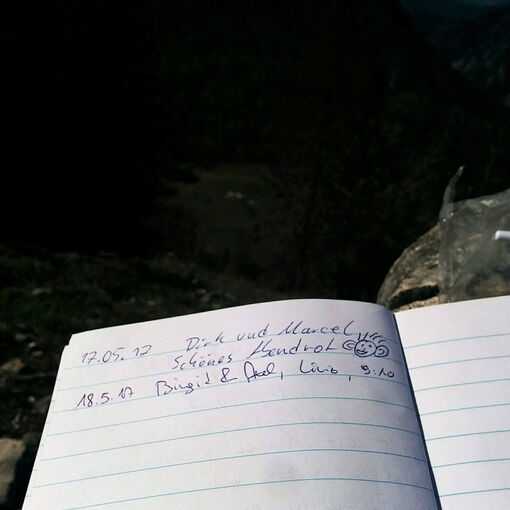 17.05.17 Dirk und Marcel
Schönes Abendrot
18.5.17 Birgit & , , 9:10